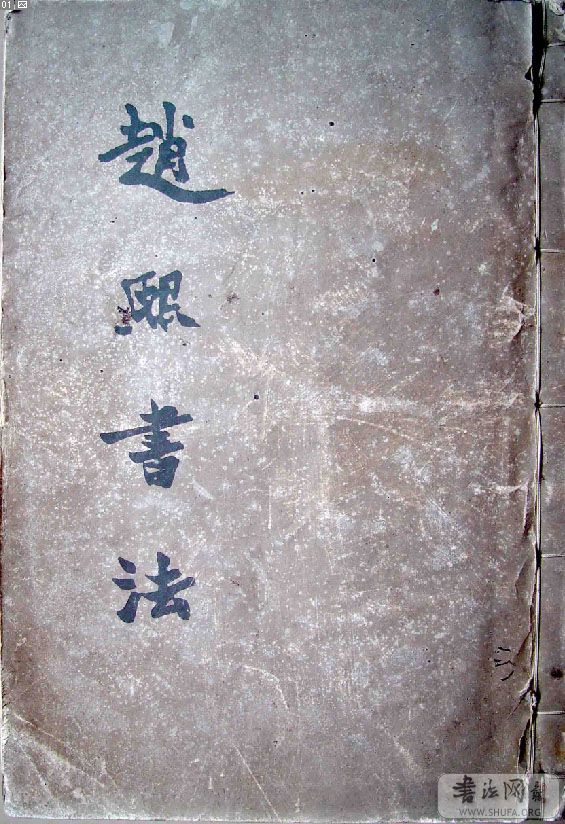 01
趙熙書法
书法网
WWW.SHUFA.ORG